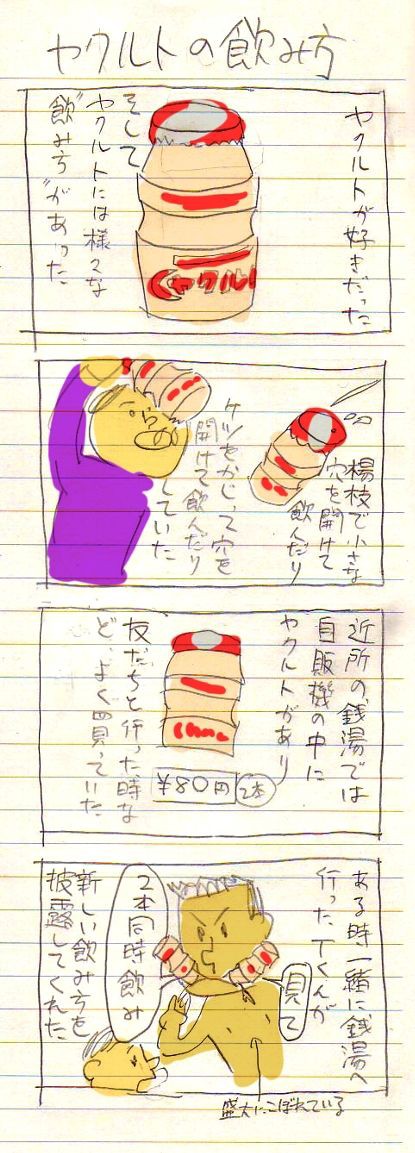 ヤクルトの飲み方
ヤクルトが好きだった
そして
ヤクルトには様々な
"飲み方"があった
ヤクルト
楊枝で小さな
穴を開けて
飲んだり
ケツをかじって穴を
開けて飲んだり
していた
近所の銭湯では
自販機の中に
ヤクルトがあり
¥80円
2本
友だちと行った時な
ど、よく買っていた
ある時一緒に銭湯へ
行ったTくんが
見て
2本同時飲み
新しい飲み方を
披露してくれた
盛大にこぼれている